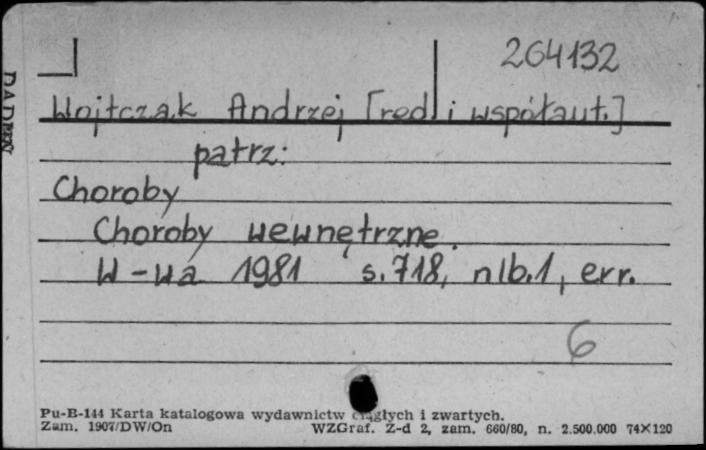 264132
Wojtczak Andrzej [red. i współaut.]
patrz:
Choroby
Choroby wewnętrzne.
W-wa 1981 s. 718, nlb. 1, err.
6
Pu-B-144 Karta katalogowa wydawnictw ciągłych i zwartych.
Zam. 1907/DW/On WZGraf. Z-d 2, zam. 660/80, n. 2.500.000 74×120